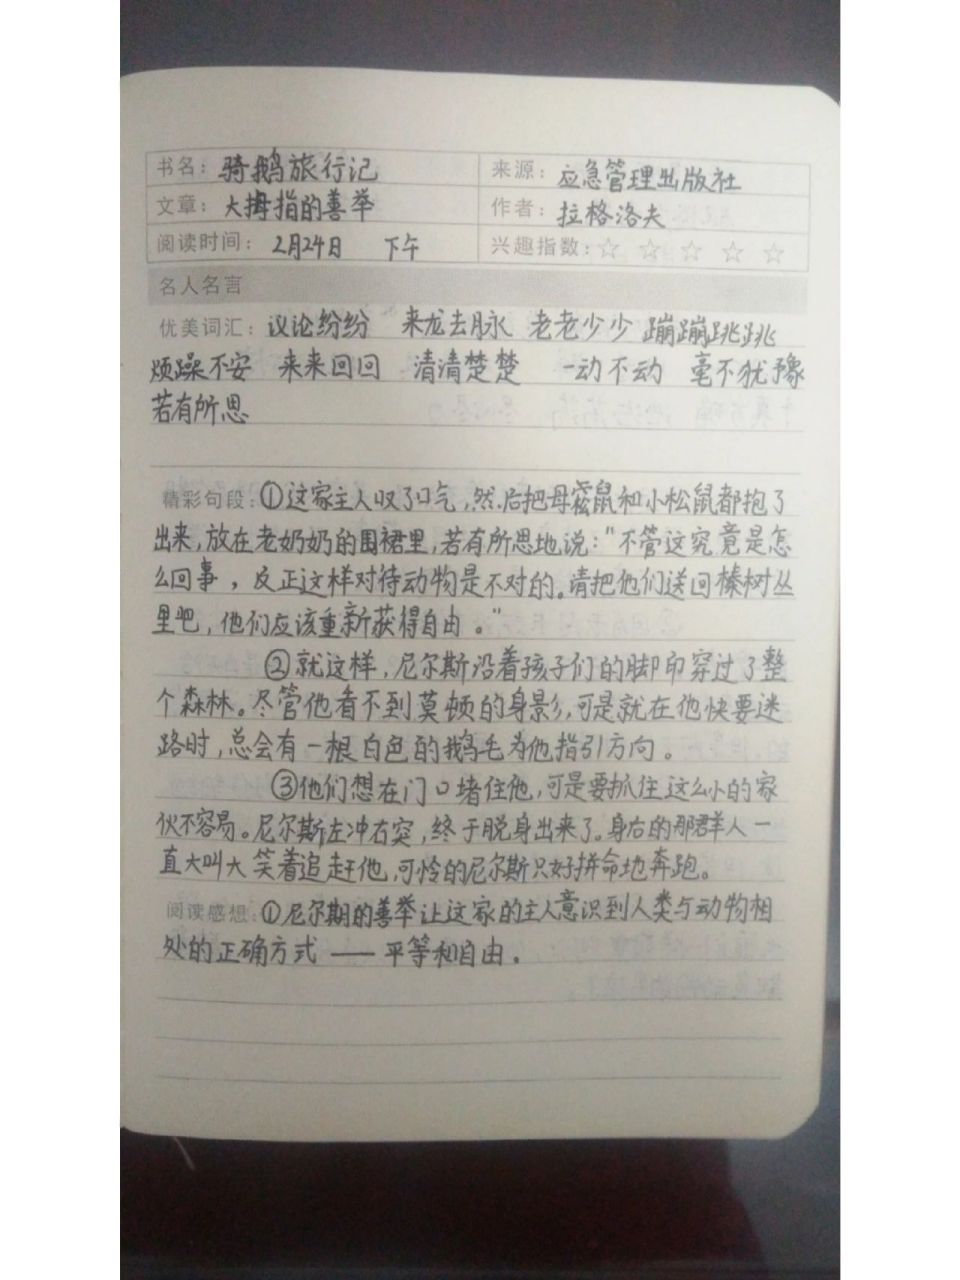 书名: 骑鹅旅行记 来源: 应急管理出版社
文章: 大拇指的善举 作者: 拉格洛夫
阅读时间: 2月24日 下午 兴趣指数: ☆ ☆ ☆ ☆ ☆
名人名言
优美词汇: 议论纷纷 来龙去脉 老老少少 蹦蹦跳跳
烦躁不安 来来回回 清清楚楚 一动不动 毫不犹豫
若有所思
精彩句段: ①这家主人叹了口气,然后把母松鼠和小松鼠都抱了
出来,放在老奶奶的围裙里,若有所思地说:"不管这究竟是怎
么回事,反正这样对待动物是不对的。请把他们送回榛树丛
里吧,他们应该重新获得自由。"
②就这样,尼尔斯沿着孩子们的脚印穿过了整
个森林。尽管他看不到莫顿的身影,可是就在他快要迷
路时,总会有一根白色的鹅毛为他指引方向。
③他们想在门口堵住他,可是要抓住这么小的家
伙不容易。尼尔斯左冲右突,终于脱身出来了。身后的那群人一
直大叫大笑着追赶他,可怜的尼尔斯只好拼命地奔跑。
阅读感想: ①尼尔期的善举让这家的主人意识到人类与动物相
处的正确方式——平等和自由。